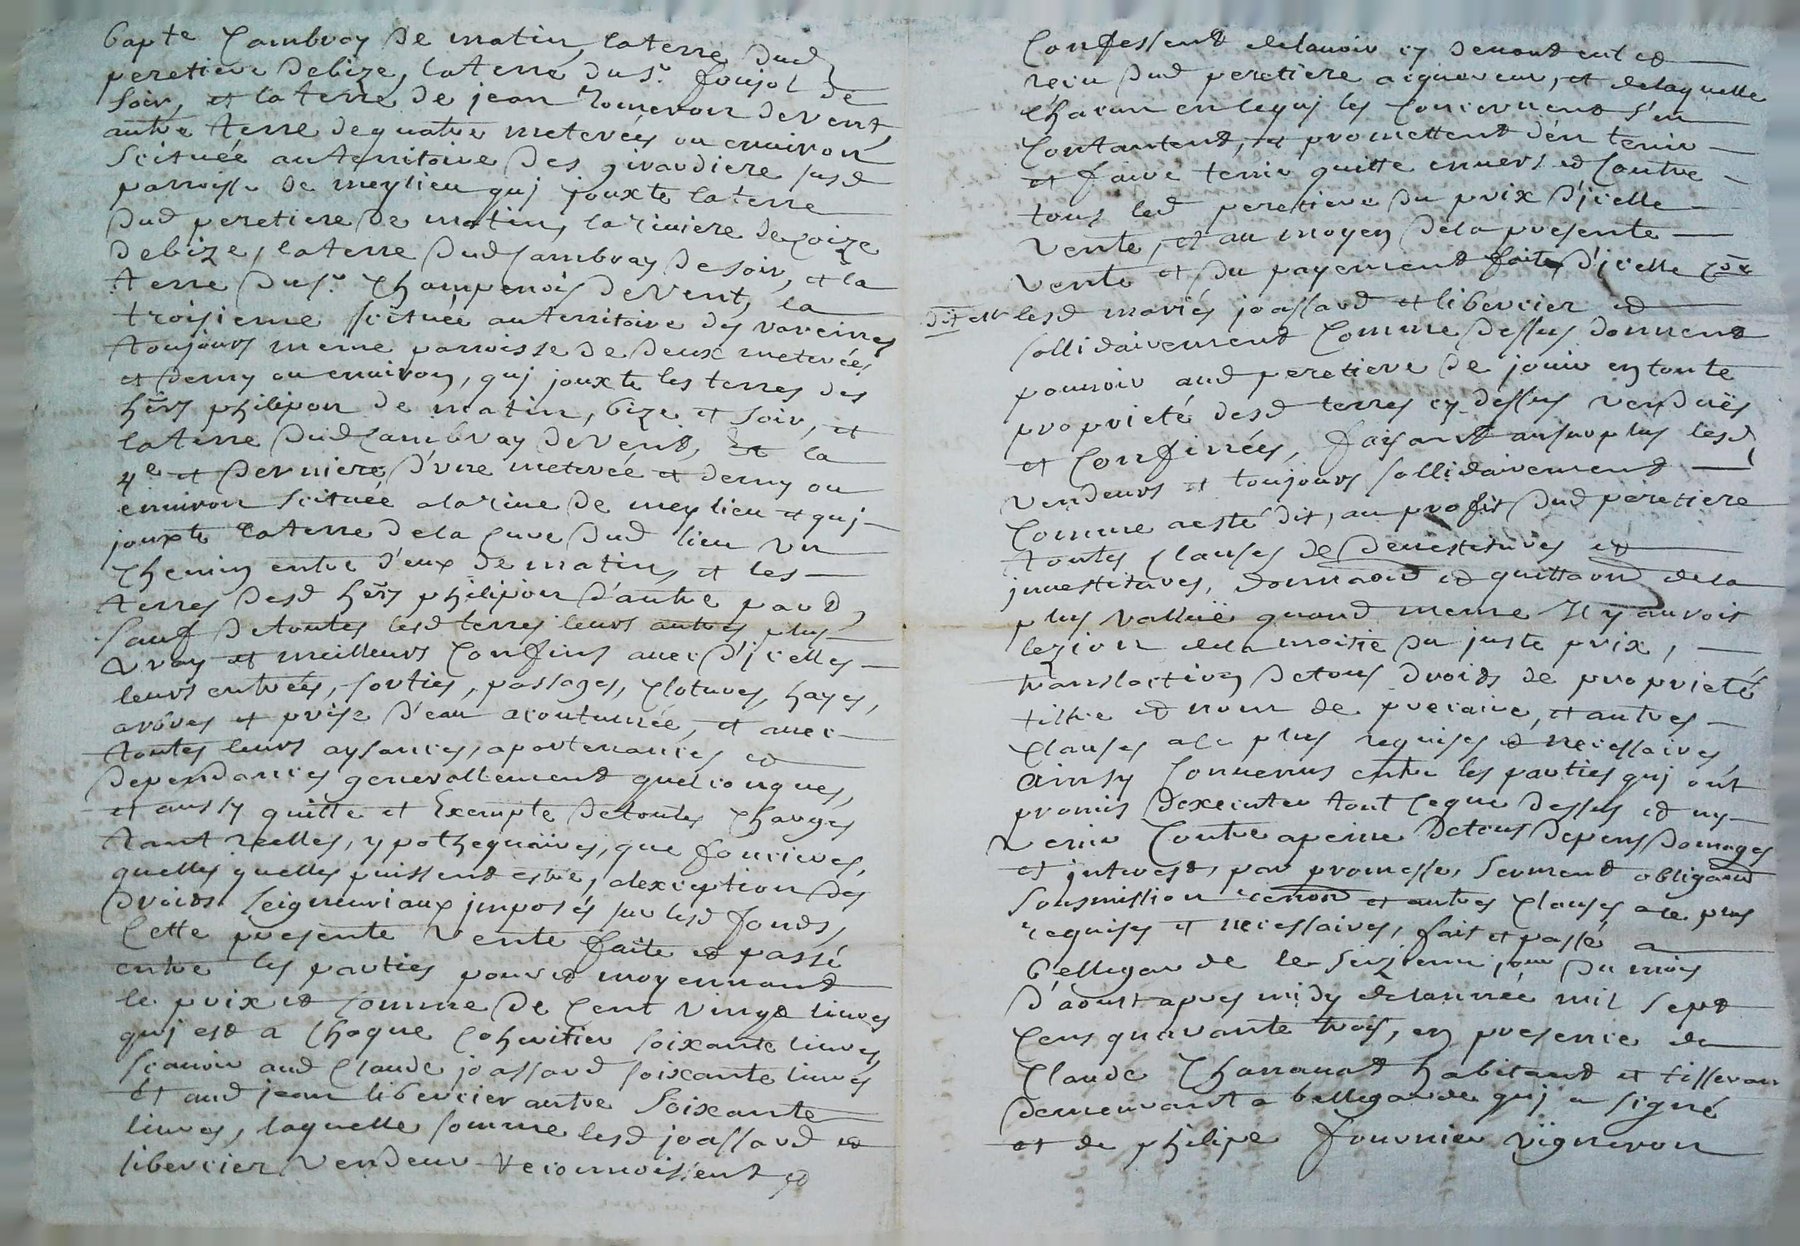 bapte Cambray de matin, la terre dud
peretiere debize, la terre du sr. foujol de
soir, et la terre de jean Romeron devent,
autre terre dequatre meterées ou environ
scituée au territoire des giraudiere susd
parroisse de meylieu quj jouxte la terre
dud peretiere de matin, la riviere de coize
debize, la terre dud Cambray de soir, et la
terre du sr. Champenois devent, la
troisieme scituée au territoire des vareines
toujours meme parroisse de deux meterées
et demy ou environ, quj jouxte les terres des
hers philipon de matin, bize et soir, et
la terre dud Cambray devent, la
4e et derniere d'une meterée et demy ou
environ scituée alarive de meylieu et quj
jouxte la terre de la cure dud lieu un
chemin entre d'eux de matin, et les
terres desd hers philipon d'autre pard,
sauf detoutes lesd terres leurs autres plus
vray et meilleurs Confins avec d'jcelles
leurs entrées, sorties, passages, clotures, hayes,
arbres et prise d'eau acoutumée, et avec
toutes leurs aysances, apartenances et
dependances generallement quelconques,
et aussy quitte et Exempte detoutes charges
tant reelles, ypothequaires, que foncieres,
quelles quelles puissent estre, alexception des
droids seigneuriaux jmposés sur lesd fonds,
Cette presente vente faite et passé
entre les parties pour et moyennand
le prix et somme de Cent vingt livres
quj est a Chaque Coheritier soixante livres,
scavoir aud Claude joassard soixante livres
et aud jean libercier autre soixante
livres, laquelle somme lesd joassard et
libercier vendeur reconnoissent et
Confessent delavoir cy devant eut et
recu dud peretiere acquereur, et delaquelle
chacun en cequj les Concernend s'en
Contantent, et promettent d'en tenir
et faire tenir quitte envers et Contre
tous led peretiere du prix d'jcelle
vente, et au moyen dela presente
vente et du payement fait d'jcelle
lesd mariés joassard et libercier et
sollidairement Comme dessus donnent
pouvoir aud peretiere de jouir en toute
proprieté desd terres cy dessus venduës
et Confinées, faisant ausurplus lesd
vendeurs et toujours sollidairement
Comme aesté dit, au profit dud peretiere
toutes clauses de devestitures et
jnvestitures, donnand et quittand dela
plus valluë quand meme Il y auroit
lezion dela moitié du juste prix,
translaction detous droids de proprieté
tiltre et nom de precaire, et autres
clauses ace plus requises et necessaires
ainsy Convenus entre les parties quj ont
promis dexecuter tout ceque dessus et ny
venir Contre apeine detous depens domages
et jnterests, par promesse, serment obligand
sousmission renond et autres clauses ace plus
requises et necessaires, fait et passé a
bellegarde le seizieme jour du mois
d'aoust apres midy delannée mil sept
Cens quarante trois, en presence de
Claude Charrouat habitand et tisseran
demeurant a bellegarde quj a signé
et de philipe fournier vigneron